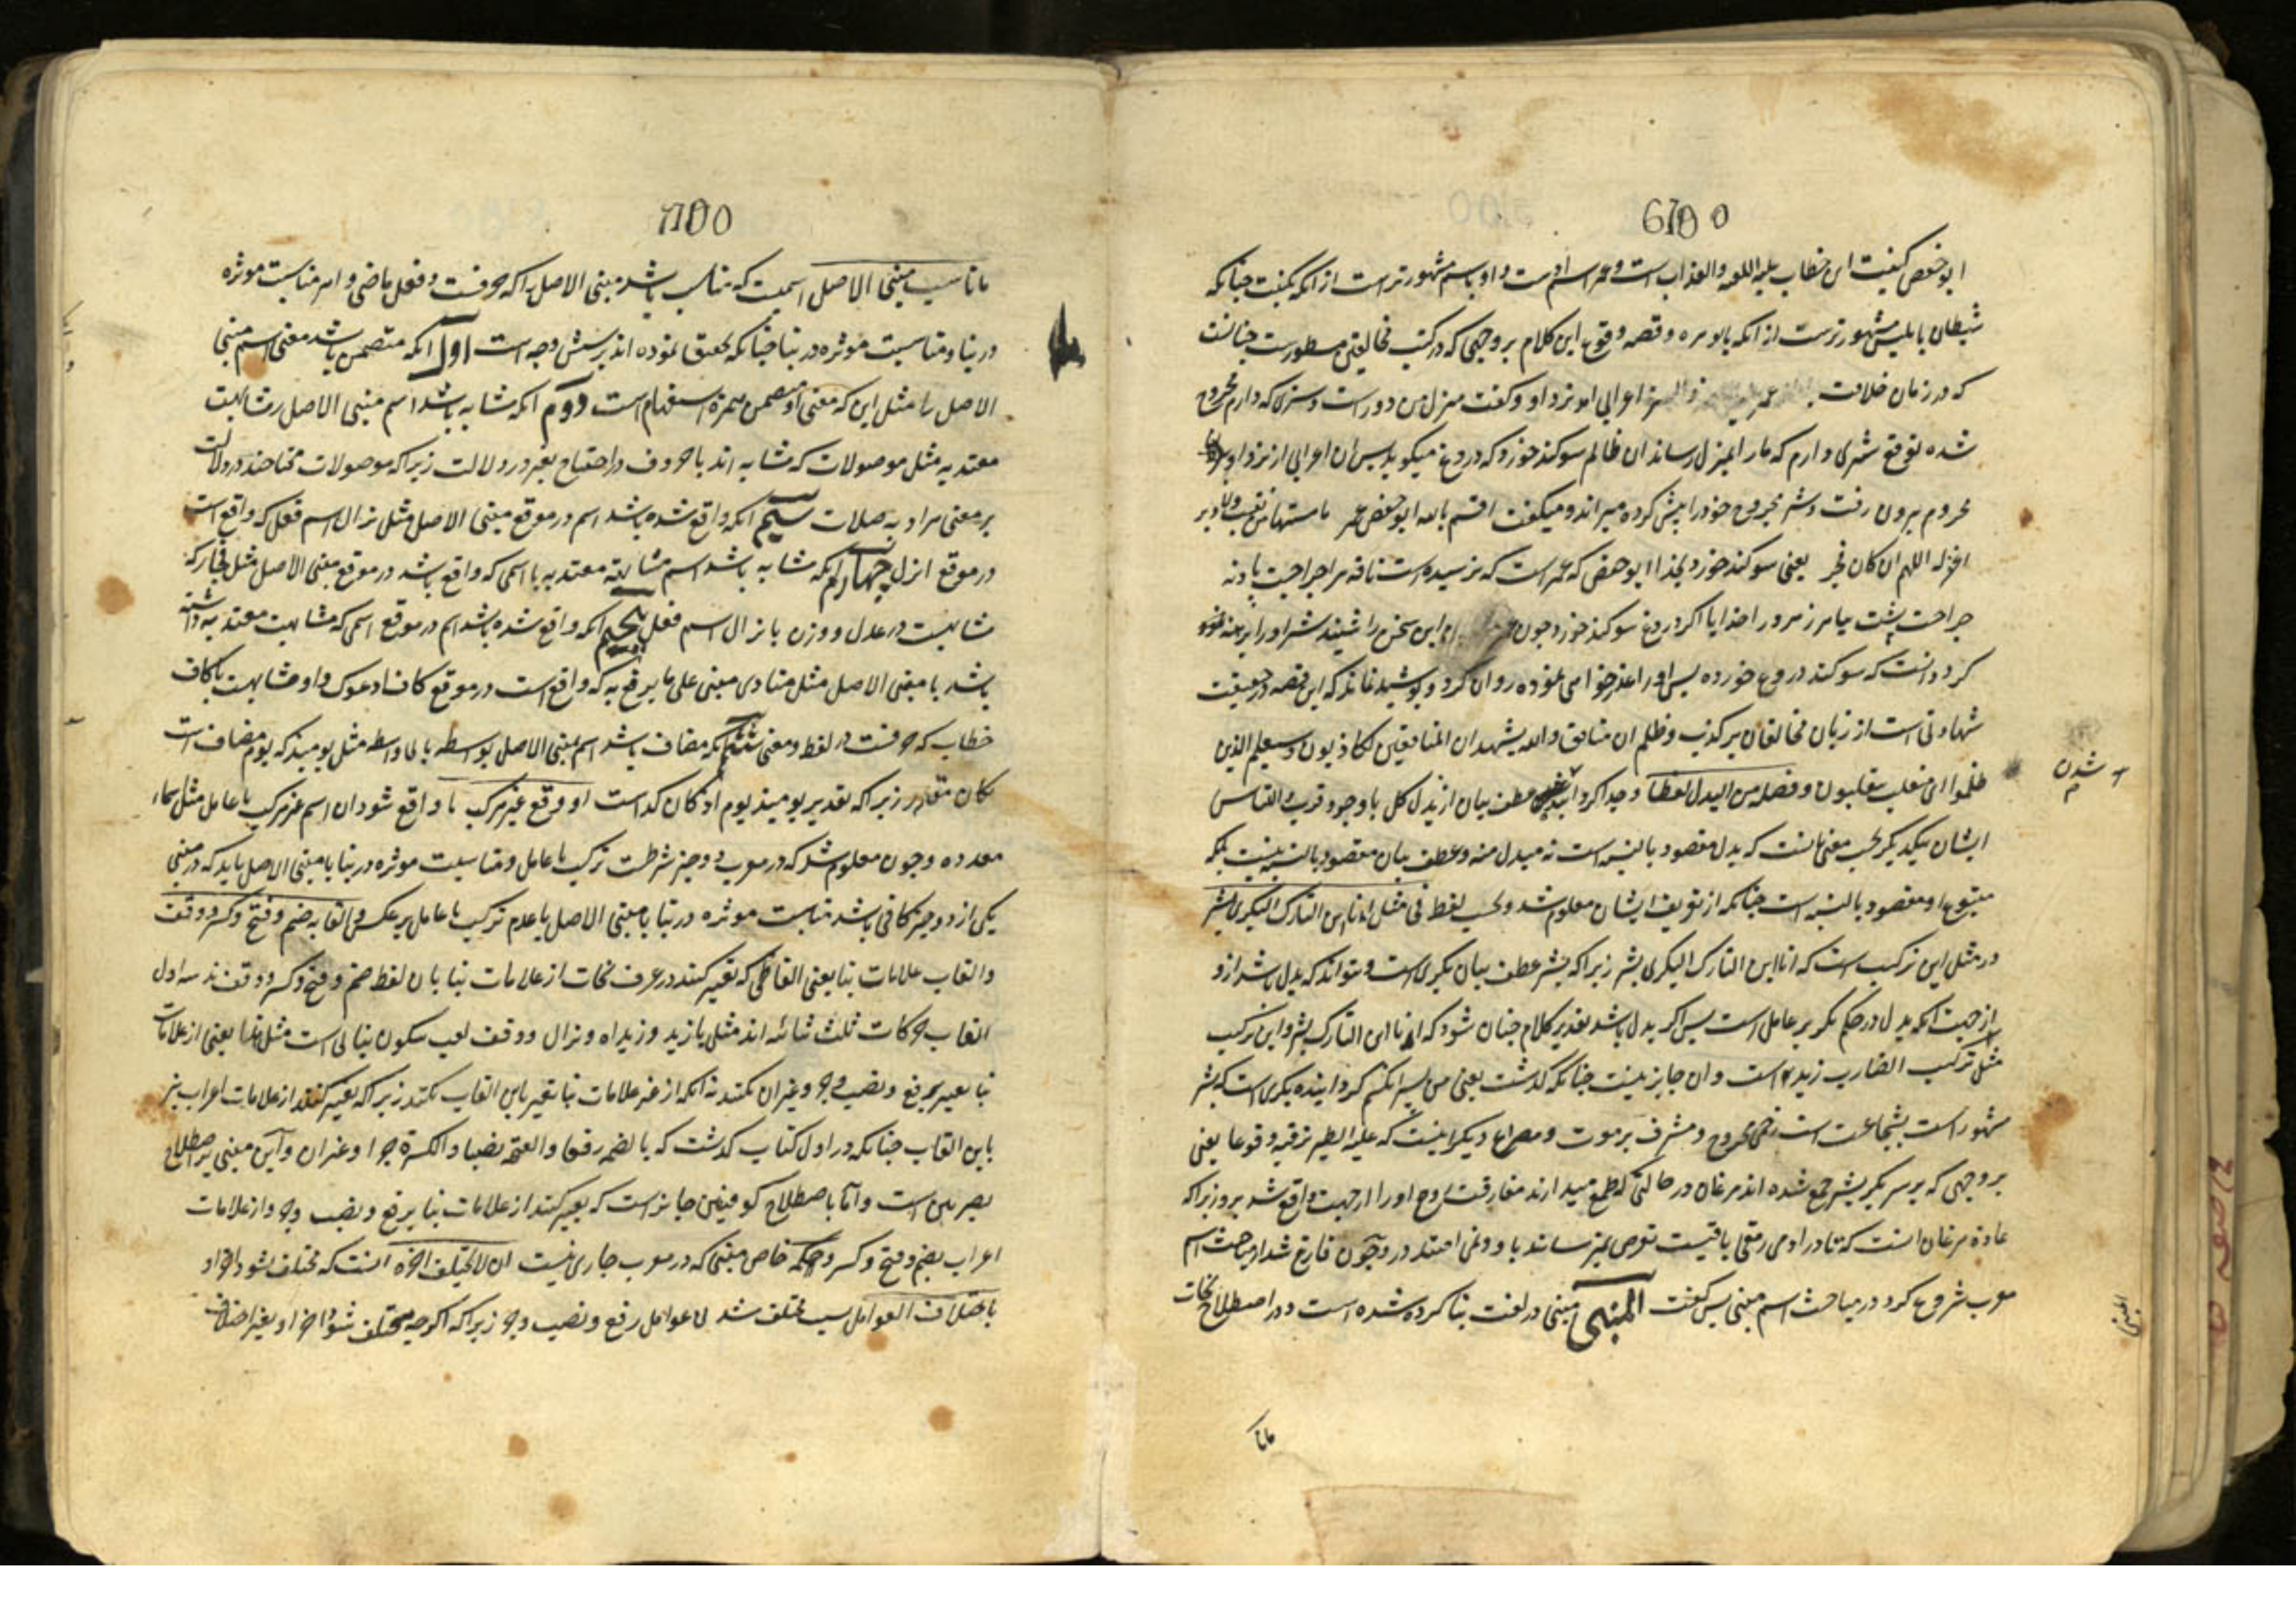 6100
ابو حفص کنیت ابن خطاب علیه اللعنه والعذاب است و عمر اسم اوست و او باسم مشهورتر است از آنکه بکنیت چنانکه
شیطان بابلیس مشهورترست از آنکه بابو مره و قصه وقوع این کلام بر وجهی که در کتب مخالفین مسطورست چنانست
که در زمان خلافت اعرابی آمد نزد او و گفت منزل من دور است و شتری که دارم مجروح
شده توقع شتری دارم که مار را بمنزل رساند آن ظالم سوکند خورد که دروغ میکوید پس آن اعرابی از نزد او
محروم بیرون رفت و شتر مجروح خود را پیش کرده میراند و میکفت اقسم بالله ابو حفص عمر ما مسها من نقب ولا دبر
اغفر له اللهم ان کان فجر یعنی سوکند خورد بخدا ابو حفص که عمر است که نرسیده است ناقه مرا جراحت پا و نه
جراحت پشت بیامرز مر ورا خدایا اکر دروغ سوکند خورد چون این سخن را شنید شتر او را برهنه
کرد دانست که سوکند دروغ خورده پس او را عذر خواهی نموده روان کرد و پوشیده نماند که این قصه در حقیقت
شهادتی است از زبان مخالفان بر کذب و ظلم ان منافق والله یشهد ان المنافقین لکاذبون وسیعلم الذین
ظلموا ای منقلب ینقلبون وفصله من البدل لفظا وجدا کردانید عطف بیان از بدل کل با وجود قرب التباس
ایشان بیکدیکر بحسب معنی آنست که بدل مقصود بالنسبه است نه مبدل منه و عطف بیان مقصود بالنسبه نیست بلکه
متبوع او مقصود بالنسبه است چنانکه از تعریف ایشان معلوم شد و بحسب لفظ فی مثل انا ابن التارک البکری بشر
در مثل این ترکیب است که انا ابن التارک البکری بشر زیرا که بشر عطف بیان بکری است و نتواند که بدل باشد ازو
از جهت آنکه بدل در حکم تکریر عامل است پس اکر بدل باشد تقدیر کلام چنان شود که انا ابن التارک بشر و این ترکیب
مثل ترکیب الضارب زید است و آن جایز نیست چنانکه کذشت یعنی من پسر انکسم کرداینده بکری است که بشر
مشهور است بشجاعت است زخمی مجروح و مشرف بر موت و مصراع دیکر اینست که علیه الطیر ترقبه وقوعا یعنی
بر وجهی که بر سر بکری بشر جمع شده اند مرغان در حالتی که طمع میدارند مفارقت روح او را از جهت واقع شد برو زیرا که
عادة مرغان انست که تا در آدمی رمقی باقیست تعرض نمیرسانند باو و نمی افتند در و چون فارغ شد از مباحث اسم
معرب شروع کرد در مباحث اسم مبنی پس کفت المبنی مبنی در لغت بنا کرده شده است و در اصطلاح نحات
شدن
المبنی
مانا
7100
ماناسب مبنی الاصل اسمیست که مناسب باشد مبنی الاصل را که حرفست و فعل ماضی و امر مناسبت موثره
در بنا و مناسبت موثره در بنا چنانکه تحقیق نموده اند بر شش وجه است اول آنکه متضمن باشد معنی اسم مبنی
الاصل را مثل این که معنی او متضمن همزه استفهام است دوم آنکه مشابه باشد اسم مبنی الاصل را مشابهت
معتد به مثل موصولات که مشابه اند با حروف در احتیاج بغیر در دلالت زیرا که موصولات محتاجند در دلالت
بر معنی مراد به صلات سیم آنکه واقع شده باشد اسم در موقع مبنی الاصل مثل نزال اسم فعل که واقع است
در موقع انزل چهارم آنکه مشابه باشد اسم مشابهة معتد به با اسمی که واقع باشد در موقع مبنی الاصل مثل فجار که
مشابهست در عدل و وزن با نزال اسم فعل پنجم آنکه واقع شده باشد اسم در موقع اسمی که مشابهت معتد به داشته
باشد با مبنی الاصل مثل منادی مبنی علی ما یرفع به که واقع است در موقع کاف ادعوک و او مشابهست با کاف
خطاب که حرفست در لفظ و معنی ششم آنکه مضاف باشد اسم بمبنی الاصل بواسطه یا بلا واسطه مثل یومئذ که یوم مضاف است
زیرا که تقدیر یومئذ یوم اذ کان کذا است او وقع غیر مرکب یا واقع شود ان اسم غیر مرکب با عامل مثل اسماء
معدده و چون معلوم شد که در معرب دو چیز شرطست ترکیب با عامل و مناسبت موثره در بنا با مبنی الاصل باید که در مبنی
یکی از دو چیز کافی باشد مناسبت موثره در بنا با مبنی الاصل یا عدم ترکیب با عامل بر عکس والقابه ضم وفتح وکسر ووقف
والقاب علامات بنا یعنی الفاظی که تعبیر کنند در عرف نحات از علامات بنا بان لفظ ضم وفتح وکسر ووقف ند سه اول
القاب حرکات ثلث بنائیه اند مثل یا زید و زیداه و نزال و وقف لقب سکون بنائی است مثل یعنی از علامات
بنا تعبیر برفع ونصب وجر وغیر ان نکنند نه آنکه از غیر علامات بنا تعبیر باین القاب نکنند زیرا که تعبیر کنند از علامات اعراب نیز
باین القاب چنانکه در اول کتاب کذشت که بالضمه رفعا والفتحه نصبا والکسرة جرا وغیر ان واین معنی بر اصطلاح
بصریین است واما باصطلاح کوفیین جایز است که تعبیر کنند از علامات بنا برفع ونصب وجر واز علامات
اعراب بضم وفتح وکسر وحکمه خاص مبنی که در معرب جاری نیست ان لا یختلف اخره انست که مختلف نشود اخر او
باختلاف العوامل بسبب مختلف شدن عوامل رفع ونصب وجر زیرا که اکرچه مختلف شود اخر او بغیر